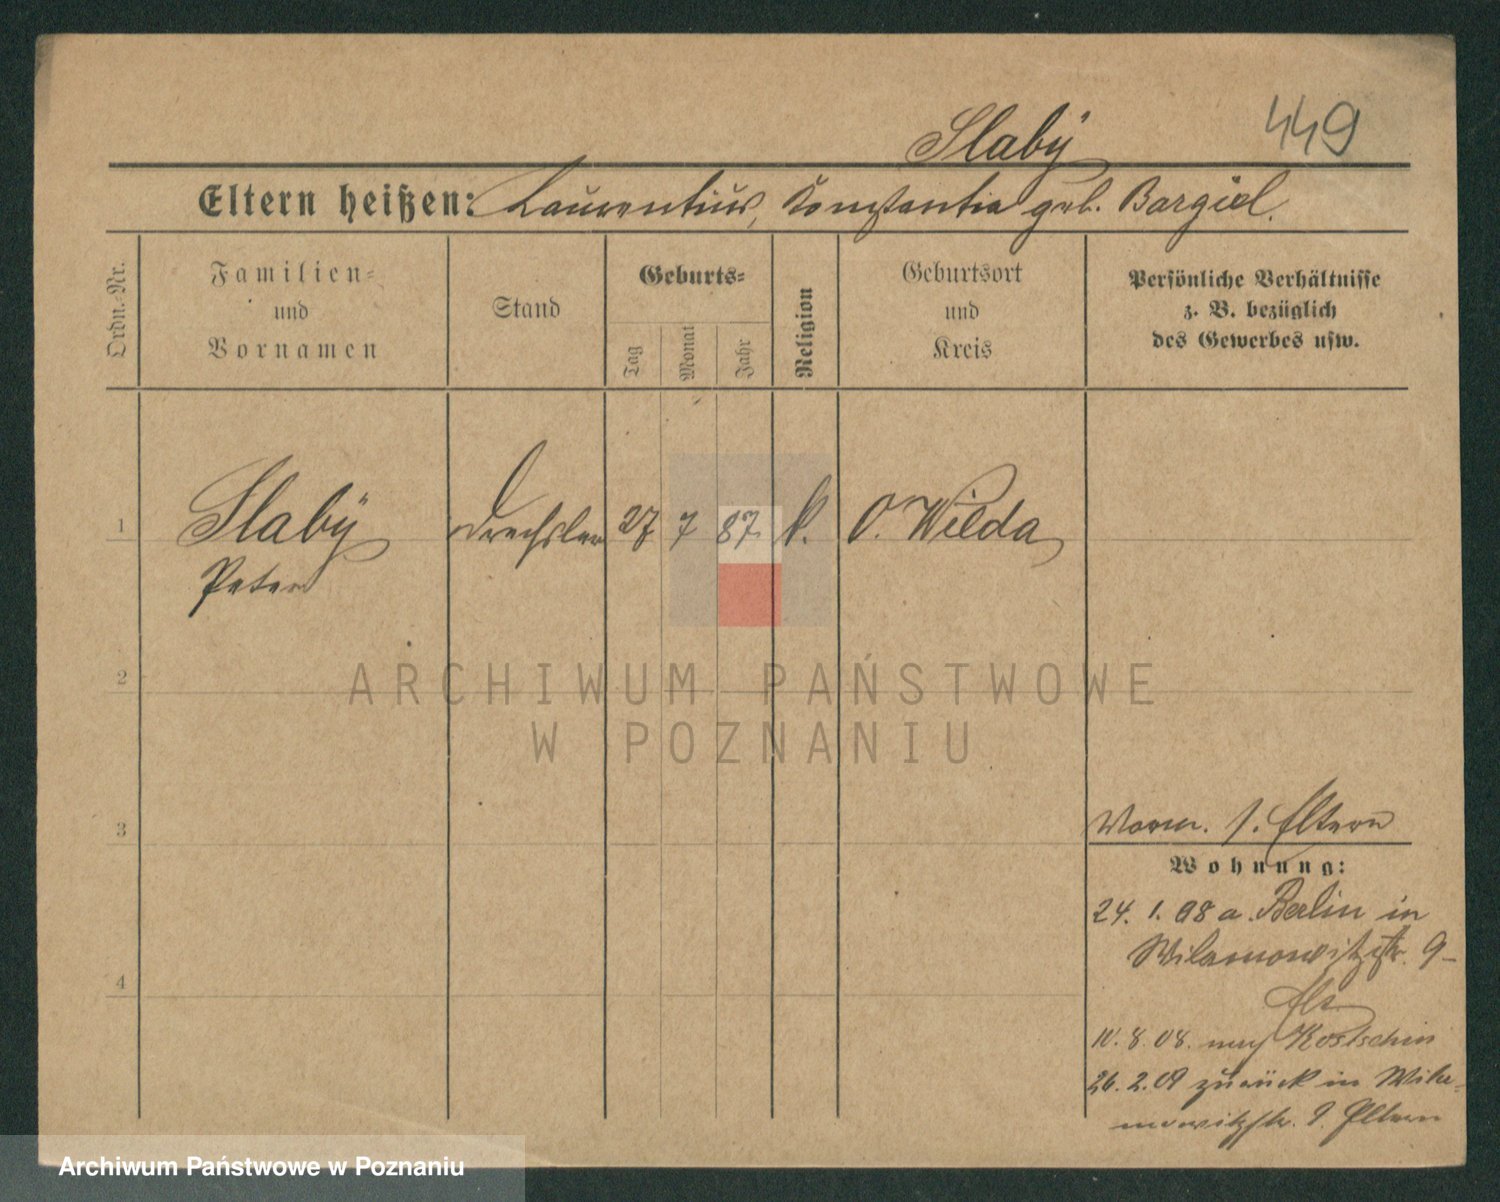 449
Slabÿ
Eltern heißen: Laurentius, Konstantia geb. Bargiel.
Ordn.-Nr.
Familien- und Vornamen
Stand
Geburts-
Tag
Monat
Jahr
Religion
Geburtsort und Kreis
Persönliche Verhältnisse
z. B. bezüglich
des Gewerbes usw.
1 Slabÿ Drechsler 27 7 87. k. O. Wilda
Peter
2
3
4
s. Eltern
Wohnung:
24. 1. 08 a. Berlin in
Wilamowitzstr. 9-
Elt.
10. 8. 08. nach Kostschin
26. 2. 09 zurück in Wila-
mowitzstr. 9. Eltern
ARCHIWUM PAŃSTWOWE
W POZNANIU
Archiwum Państwowe w Poznaniu